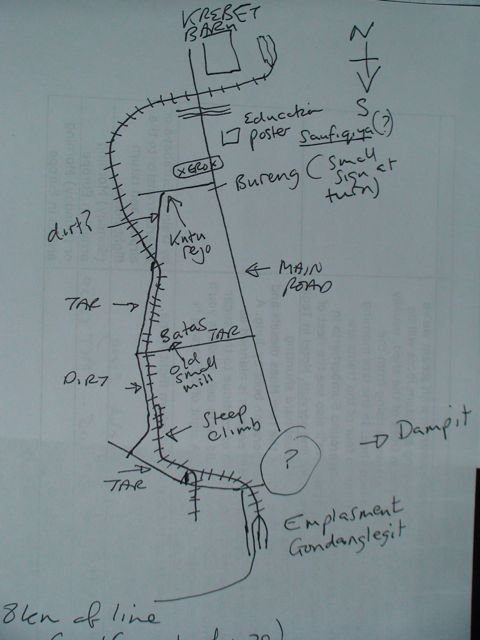 KREBET
BARU
N
S
Education
poster
Sanfiqiya(?)
XEROX
Bureng (Small
sign at
turn)
dirt?
Kntu
rejo
MAIN
ROAD
TAR
Batas
TAR
Old
small
mill
DIRT
Steep
climb
?
Dampit
TAR
Emplasment
Gondanglegit
8km of line